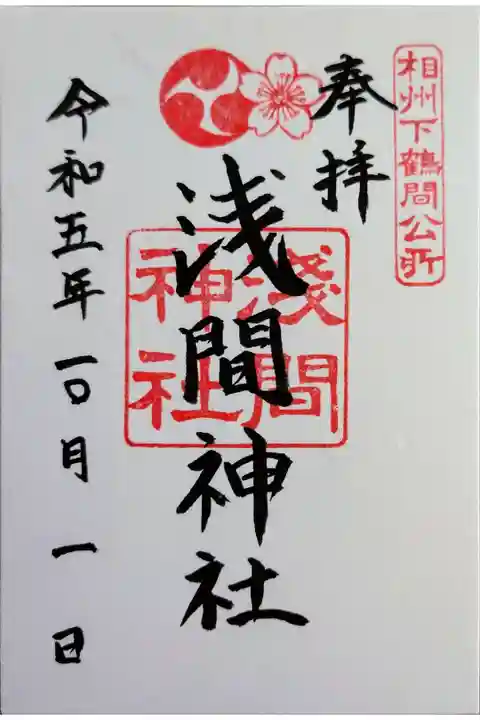 相州下鶴間公所
奉拝
淺間
神社
浅間神社
令和五年一〇月一日